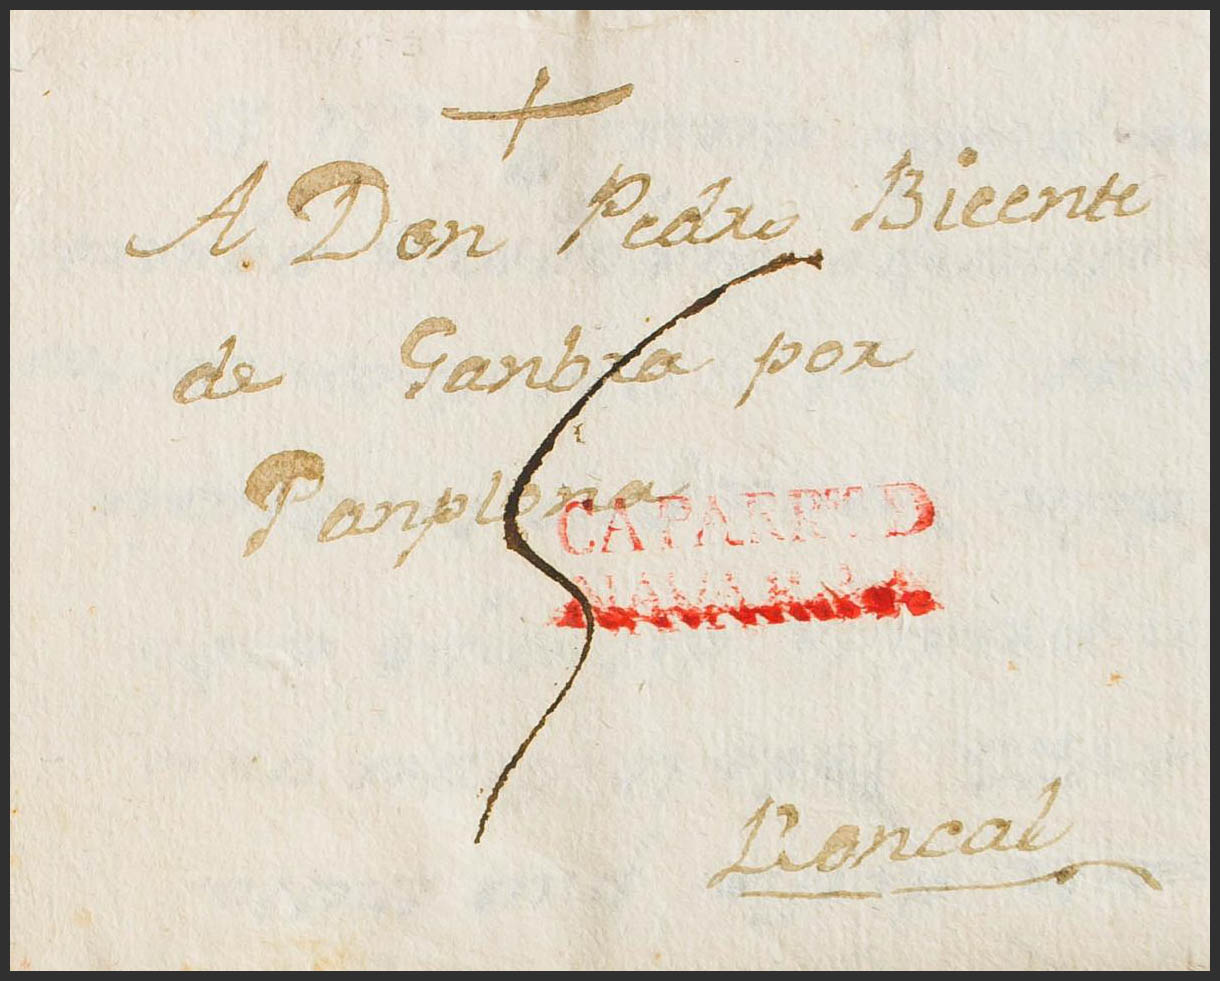 +
A Don Pedro Bicente
de Ganbra por
Panplona
5
CAPARROSO
NAVARRA
Roncal